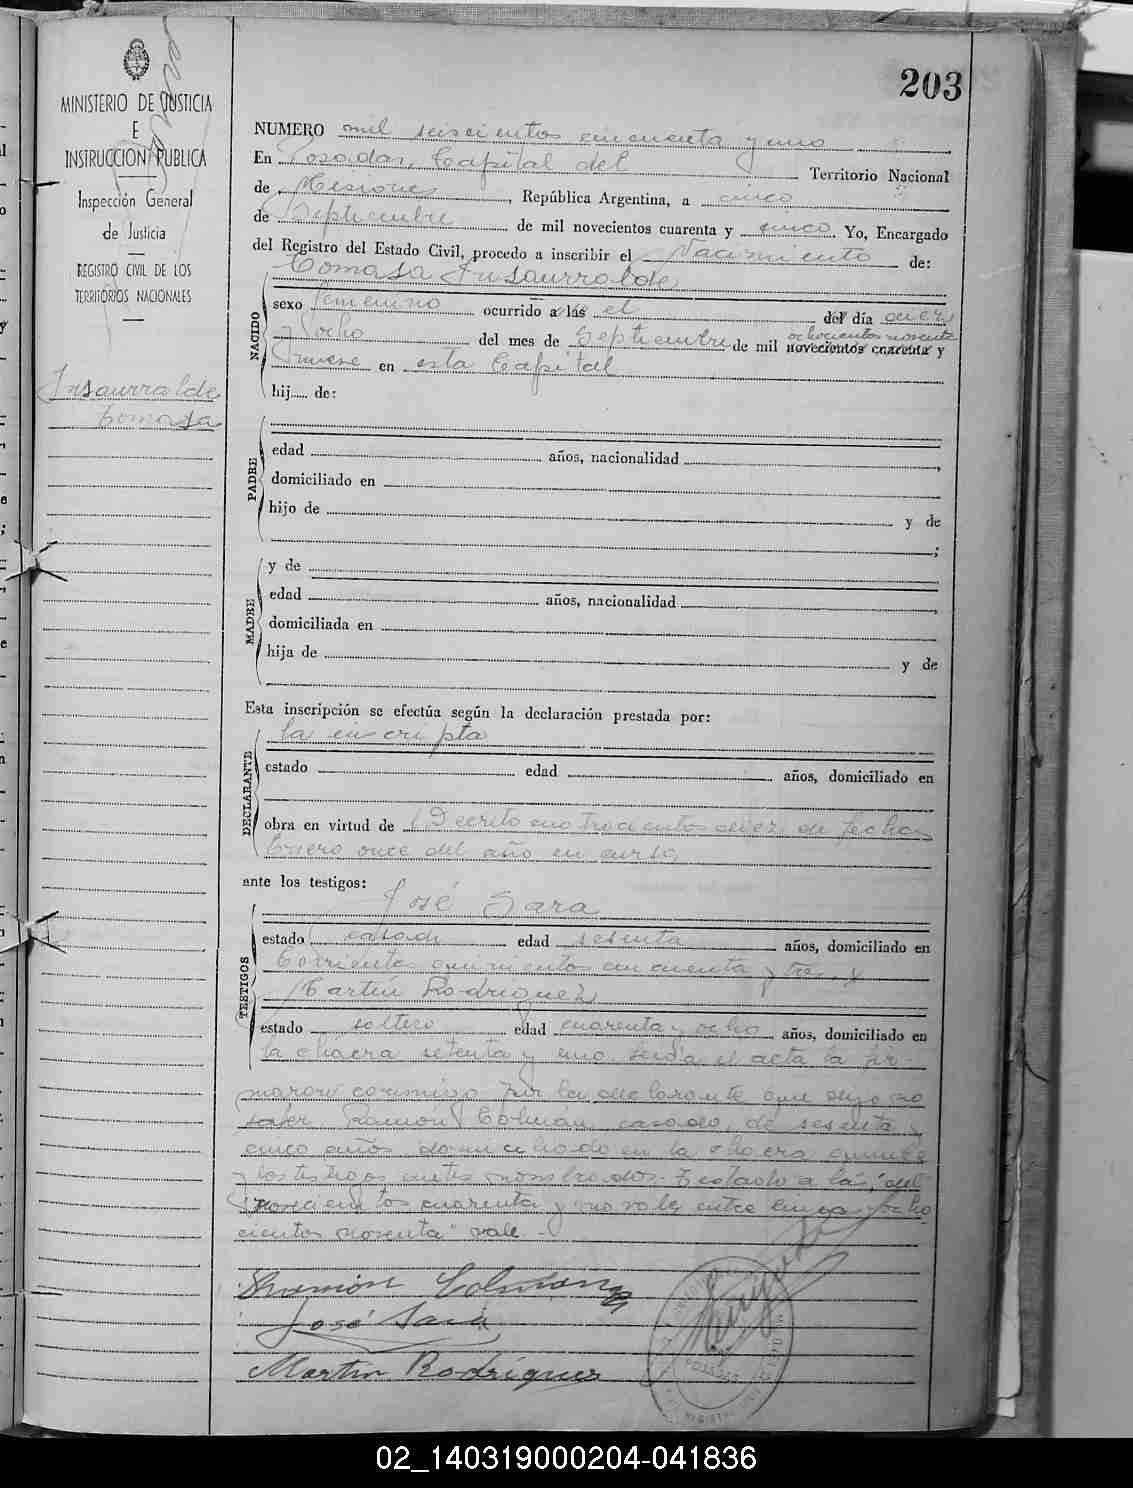 203
MINISTERIO DE JUSTICIA
E
INSTRUCCION PUBLICA
Inspección General
de Justicia
REGISTRO CIVIL DE LOS
TERRITORIOS NACIONALES
Insaurralde
Tomasa
NUMERO mil seiscientos cincuenta y uno
En Posadas, Capital del Territorio Nacional
de Misiones, República Argentina, a cinco
de Septiembre de mil novecientos cuarenta y cinco Yo, Encargado
del Registro del Estado Civil, procedo a inscribir el Nacimiento de:
Tomasa Insaurralde
NACIDO
sexo femenino ocurrido a las el del día diez
y ocho del mes de Septiembre de mil novecientos cuarenta y
ochocientos noventa
nueve en esta Capital
hij..... de:
PADRE
edad años, nacionalidad
domiciliado en
hijo de y de
;
MADRE
y de
edad años, nacionalidad
domiciliada en
hija de y de
Esta inscripción se efectúa según la declaración prestada por:
la inscripta
DECLARANTE
estado edad años, domiciliado en
obra en virtud de Decreto cuatrocientos diez de fecha
Enero once del año en curso
ante los testigos:
José Sara
TESTIGOS
estado casado edad sesenta años, domiciliado en
Corrientes quinientos cincuenta y tres y
Martín Rodriguez
estado soltero edad cuarenta y ocho años, domiciliado en
la chacra setenta y uno. Leída el acta la fir
maron conmigo por la declarante que dijo no
saber Ramón Colmán, casado, de sesenta y
cinco años domiciliado en la chacra quince
y los testigos antes nombrados. Testado a las, del
novecientos cuarenta y no vale, entre lineas ocho
cientos noventa" vale -
Ramón Colman
José Sara
Martin Rodriguez
POSADAS
02_140319000204-041836